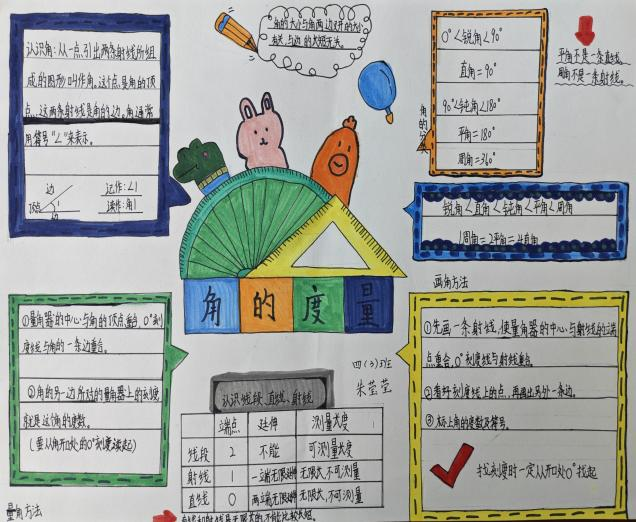 认识角:从一点引出两条射线所组
成的图形叫作角。这个点是角的顶
点,这两条射线是角的边。角通常
用符号“∠”来表示。
边
顶点
1
边
记作:∠1
读作:角1
角的大小与角两边叉开的大小
有关,与边的长短无关。
0°<锐角<90°
直角=90°
90°<钝角<180°
平角=180°
周角=360°
角的分类
平角不是一条直线,
周角不是一条射线。
锐角<直角<钝角<平角<周角
1周角=2平角=4直角
角的度量
四(3)班
朱莹莹
①量角器的中心与角的顶点重合,0°刻
度线与角的一条边重合。
②角的另一边所对的量角器上的刻度
就是这个角的度数。
(要从角开口处的0°刻度读起)
量角方法
认识线段、直线、射线
端点 延伸 测量长度
线段 2 不能 可测量长度
射线 1 一端无限延伸 无限长,不可测量
直线 0 两端无限延伸 无限长,不可测量
画角方法
①先画一条射线,使量角器的中心与射线的端
点重合,0°刻度线与射线重合。
②看好刻度线上的点,再画出另外一条边。
③标上角的度数及符号。
找刻度时一定从开口处0°找起